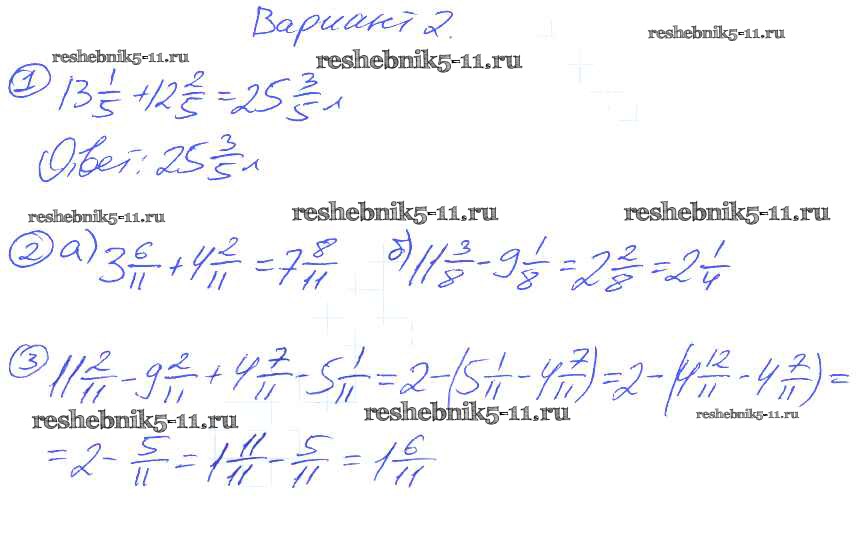 Вариант 2.
reshebnik5-11.ru reshebnik5-11.ru reshebnik5-11.ru
① 13 1/5 + 12 2/5 = 25 3/5 л
Ответ: 25 3/5 л
reshebnik5-11.ru reshebnik5-11.ru reshebnik5-11.ru
② а) 3 6/11 + 4 2/11 = 7 8/11 б) 11 3/8 - 9 1/8 = 2 2/8 = 2 1/4
③ 11 2/11 - 9 2/11 + 4 7/11 - 5 1/11 = 2 - (5 1/11 - 4 7/11) = 2 - (4 12/11 - 4 7/11) =
reshebnik5-11.ru reshebnik5-11.ru reshebnik5-11.ru
= 2 - 5/11 = 1 11/11 - 5/11 = 1 6/11